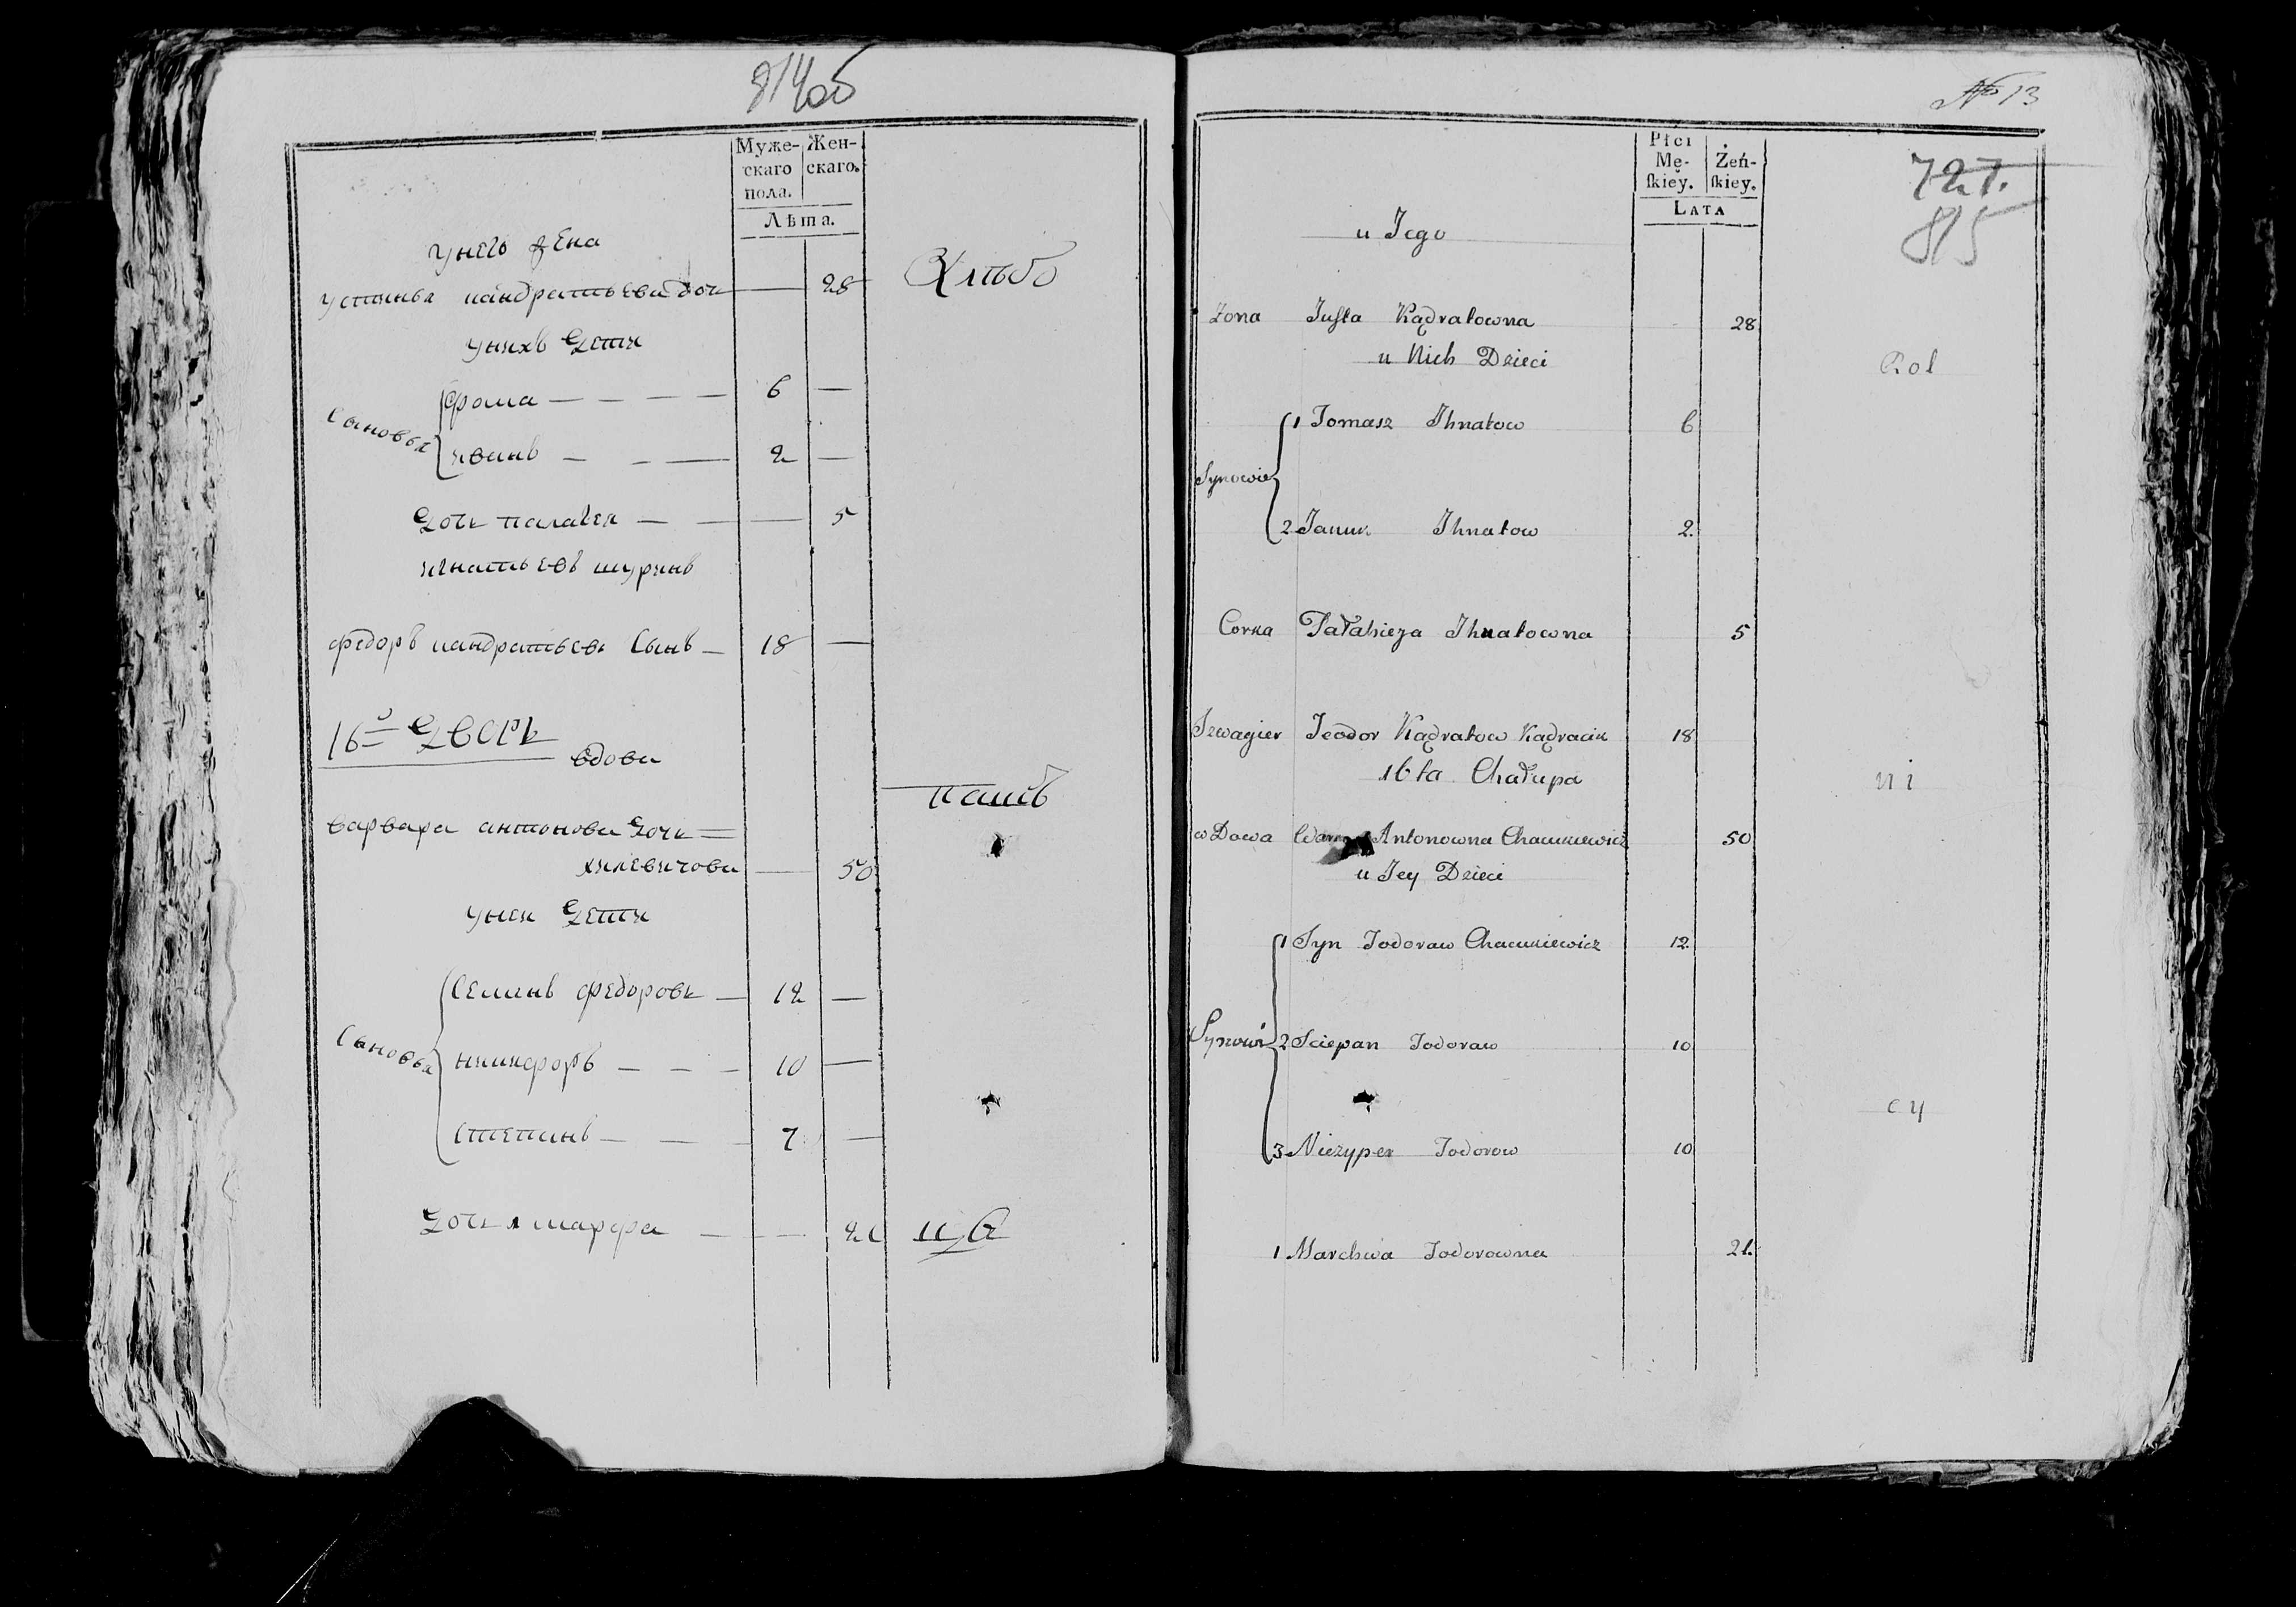 814об
Муже-
скаго
пола.
Жен-
скаго.
Лѣта.
у него жена
устинья кандратьева доч 28
Хлѣбо
у нихъ дети
Сыновья
фома 6
иванъ 2
дочь палагея 5
игнатьевъ шуринъ
федоръ кандратьевъ Сынъ 18
16й дворъ
вдова
пашъ
варвара антонова дочь
хилевичова 50
у нея дети
Сыновья
Семинъ федоровъ 12
никифоръ 10
степанъ 7
дочь марфа 21
ца
№ 13
Płci
Mę-
ſkiey.
Żeń-
ſkiey.
LATA
727.
815
u Jego
Zona Juſta Kądratowna 28
u Nich Dzieci
Rol
Synowie
1 Tomasz Ihnatow 6
2 Januk Ihnatow 2.
Corka Pałahieja Ihnatowna 5
Szwagier Teodor Kądratow Kądracik 18
16ta Chałupa
ni
w Dowa Antonowna 50
u Jey Dzieci
Synowi
1 Syn Todoraw 12.
2 Sciepan Todoraw 10
cy
3 Nieżyper Todorow 10
1 Marchwa Todorowna 21.